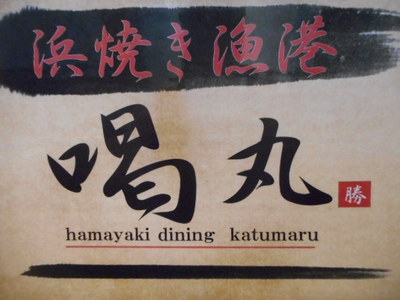 浜焼き漁港
喝丸
勝
hamayaki dining katumaru